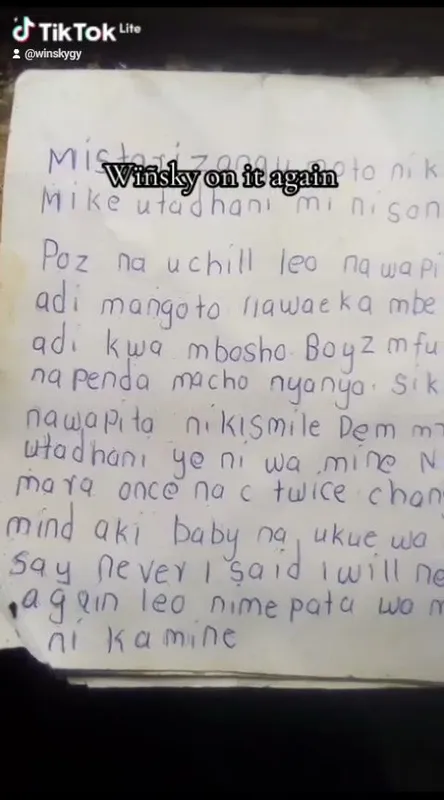 TikTok Lite
@winskygy
Wïñsky on it again
moto ni k
Mike utadhani mi ni son
Poz na uchill leo nawapi
adi mangoto nawaeka mbe
adi kwa mbosho. Boyz mfu
napenda macho nyanya. Sik
nawapita nikismile Dem m
utadhani ye ni wa mine N
mara once na c twice chan
mind aki baby na ukue wa
say never I said I will ne
again leo nimepata wa m
ni kamine